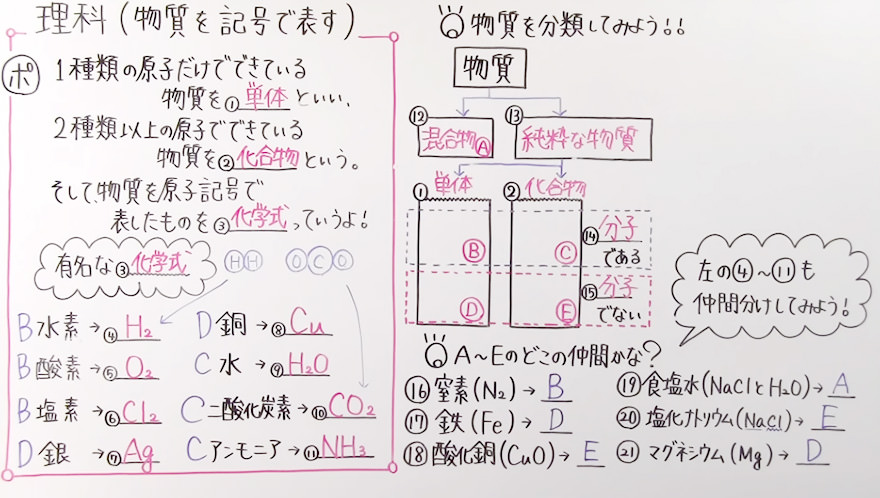 理科(物質を記号で表す)
ポ 1種類の原子だけでできている
物質を①単体といい、
2種類以上の原子でできている
物質を②化合物という。
そして、物質を原子記号で
表したものを③化学式っていうよ!
有名な③化学式 HH OCO
B水素→④H₂ D銅→⑧Cu
B酸素→⑤O₂ C水→⑨H₂O
B塩素→⑥Cl₂ C二酸化炭素→⑩CO₂
D銀→⑦Ag Cアンモニア→⑪NH₃
物質を分類してみよう!!
物質
⑫混合物Ⓐ ⑬純粋な物質
①単体 ②化合物
Ⓑ Ⓒ ⑭分子
である
Ⓓ Ⓔ ⑮分子
でない
左の④~⑪も
仲間分けしてみよう!
A~Eのどこの仲間かな?
⑯窒素(N₂)→B ⑲食塩水(NaClとH₂O)→A
⑰鉄(Fe)→D ⑳塩化ナトリウム(NaCl)→E
⑱酸化銅(CuO)→E ㉑マグネシウム(Mg)→D